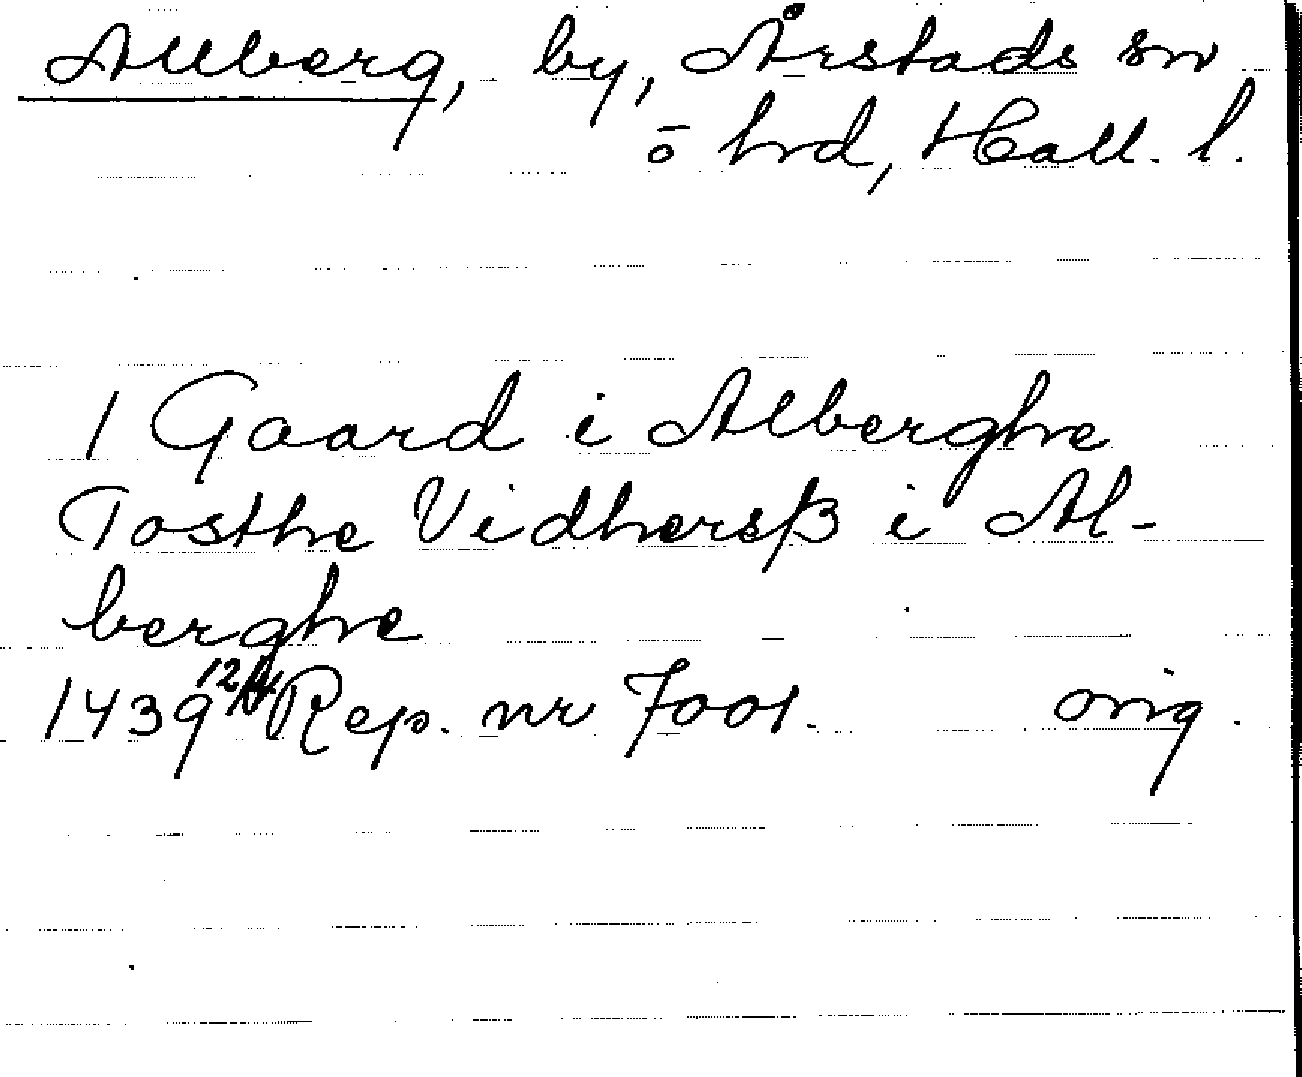 Allberg, by, Årstads sn
o hrd, Hall. l.
1 Gaard i Alberghe
Tosthe Vidhersß i Al-
berghe
1439 12/4 Rep. nr 7001. orig.